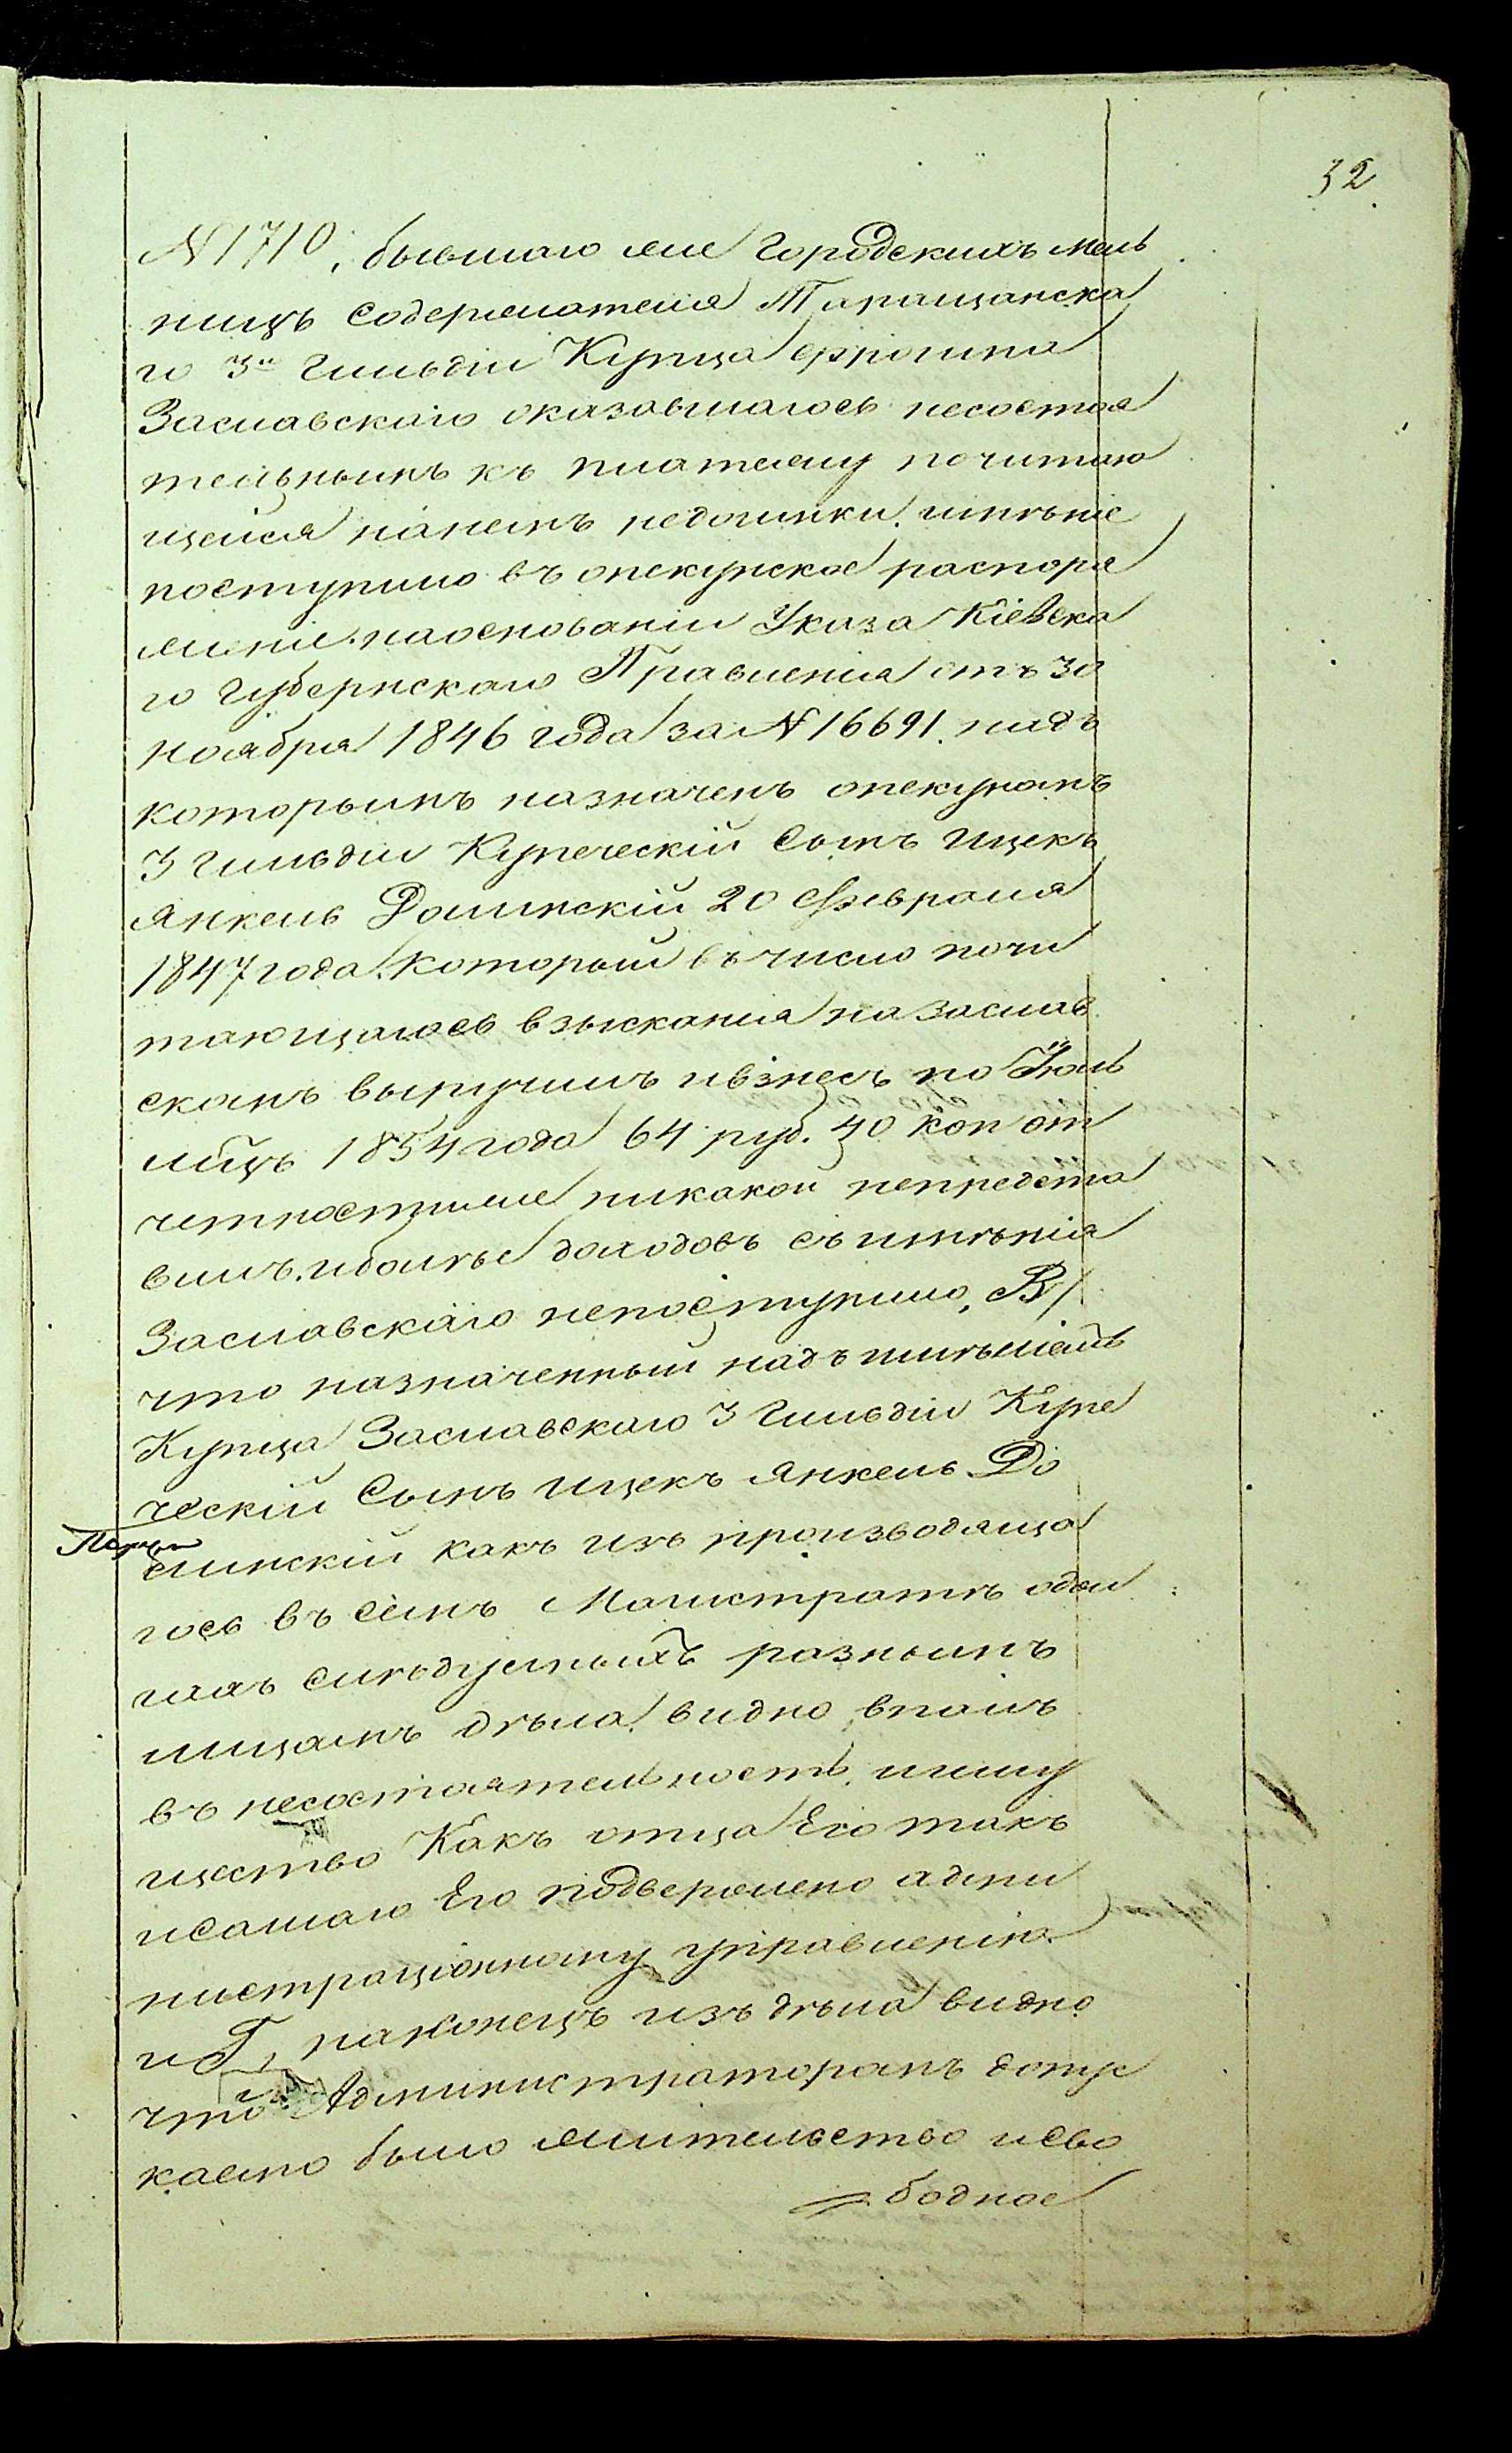 32
N 1710, бывшаго же Городскихъ мель
ницъ Содержателя Таращанска
го 3й Гильдіи Купца Фроима
Заславскаго оказавшагось несостоя
тельнымъ къ платежу почитаю
щейся нанемъ недоимки, имѣніе
поступило въ опекунское распоря
женіе наоснованіи Указа Кіевска
го Губернскаго Правленія отъ 30
ноября 1846 года за N 16691. надъ
которымъ назначенъ опекуномъ
3 гильдіи Купеческій Сынъ Ицекъ
Янкель Долинскій 20 Февраля
1847 года. который въ число почи
тающагось взысканія на Заслав
скомъ выручилъ ивзнесъ по Іюль
мцъ 1854 года 64 руб. 40 коп от
четностиже никакой непредста
вилъ. иболѣе доходовъ съ имѣнія
Заславскаго непоступило, В/
что назначенный надъ имѣніемъ
Купца Заславскаго 3 Гильдіи Купе
ческій Сынъ Ицекъ Янкель До
линскій какъ изъ производяща
гось въ семъ Магистратѣ одол
гахъ слѣдуемыхъ разнымъ
лицамъ дѣла видно, впалъ
въ несостоятельность. имму
щество Какъ отца Его такъ
исамаго Его подвержено адми
нистраціонному управленію
и Г, наконецъ изъ дѣла видно
что Администраторамъ допу
каемо было жительство исво
бодное